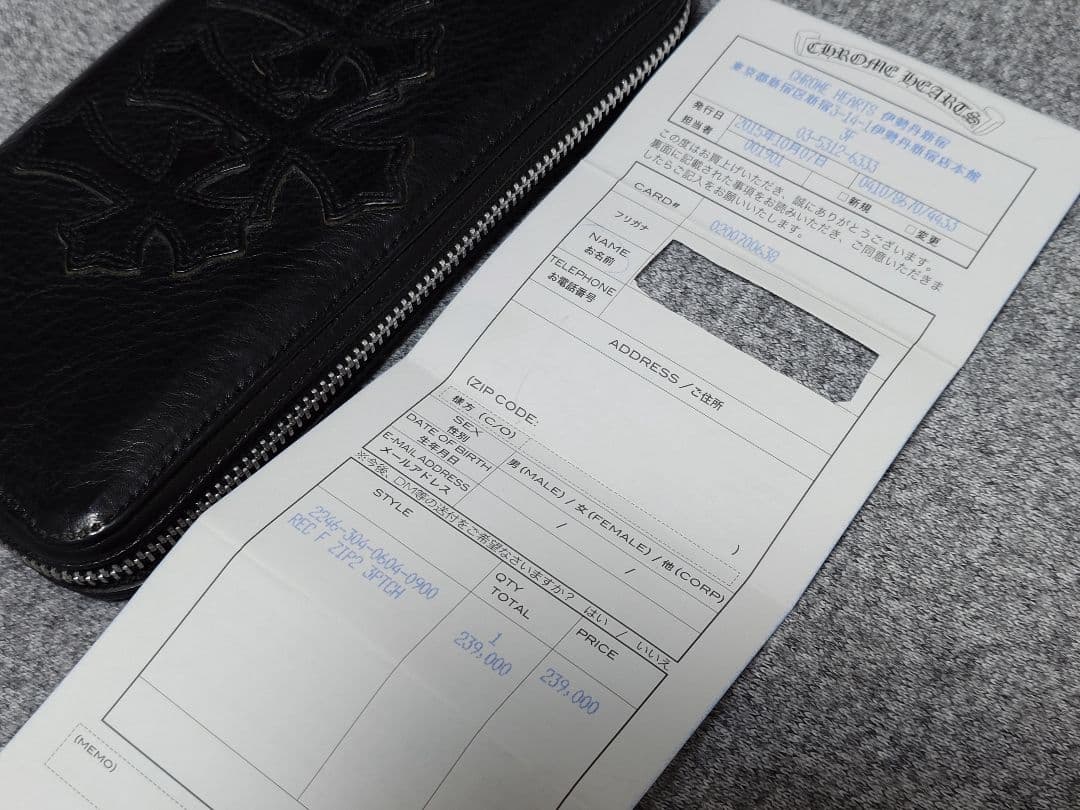 CHROME HEARTS
CHROME HEARTS 伊勢丹新宿
東京都新宿区新宿3-14-1伊勢丹新宿店本館
3F
03-5312-6333
発行日 2015年10月07日 0410/8670/4433
担当者 001901 □新規 □変更
この度はお買上げいただき、誠にありがとうございます。
裏面に記載された事項をお読みいただき、ご同意いただきま
したらご記入をお願いいたします。
CARD# 0200700638
フリガナ
NAME
お名前
TELEPHONE
お電話番号
ADDRESS/ご住所
(ZIP CODE:
様方 (C/O) )
SEX
性別 男(MALE)/女(FEMALE)/他(CORP)
DATE OF BIRTH
生年月日 / /
E-MAIL ADDRESS
メールアドレス
※今後、DM等の送付をご希望なさいますか? はい / いいえ
STYLE QTY PRICE
TOTAL
2246-304-0604-0900 1 239,000
REC F ZIP2 3PTCH 239,000
(MEMO)